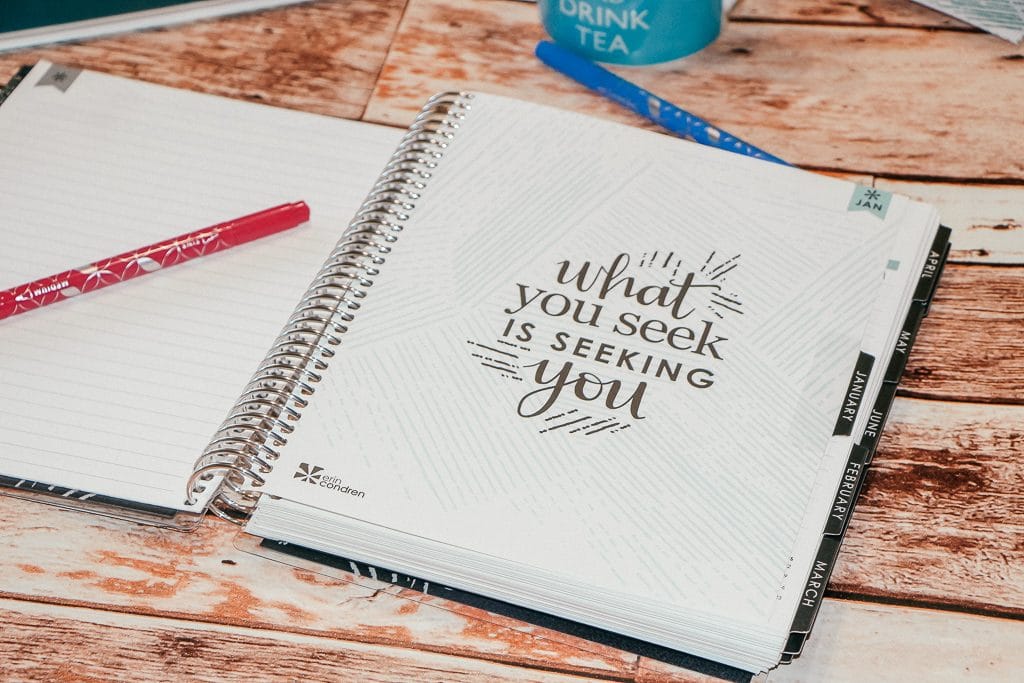 DRINK
TEA
JAN
what
you seek
IS SEEKING
you
erin
condren
MEDIUM
APRIL
MAY
JANUARY
JUNE
FEBRUARY
MARCH